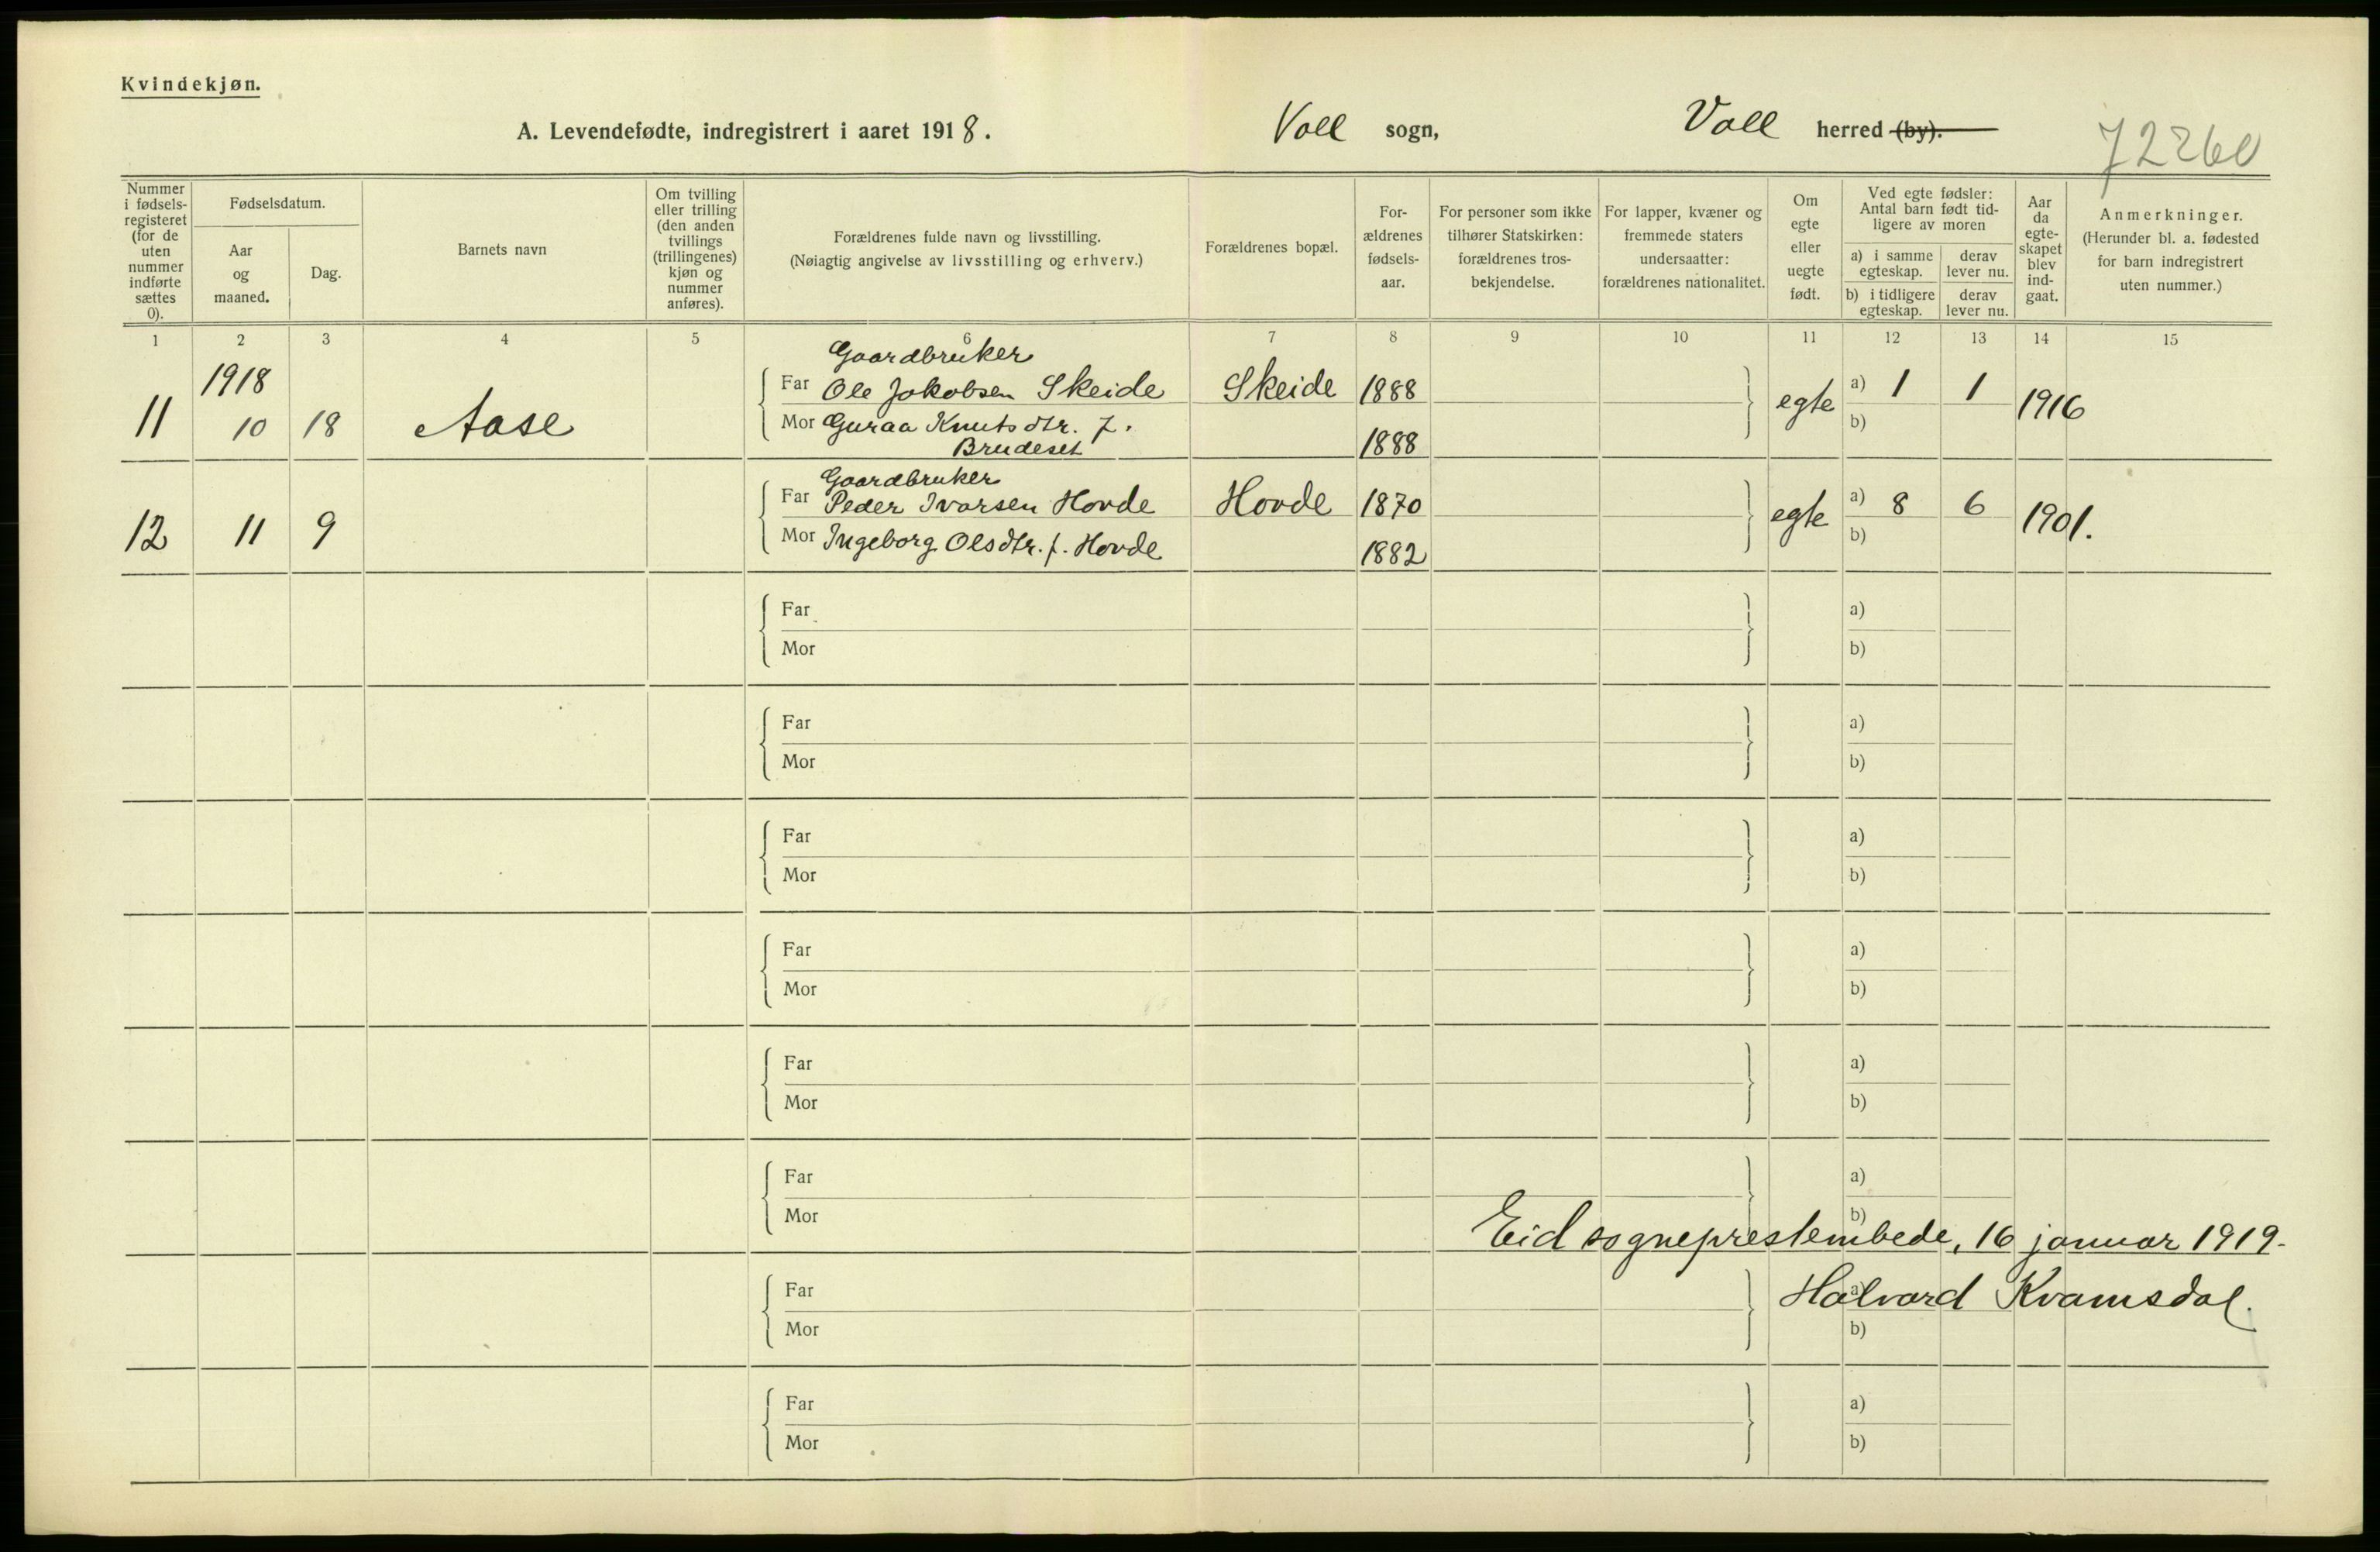 Kvindekjøn.
A. Levendefødte, indregistrert i aaret 1918. Voll sogn, Voll herred (by).
72260
Nummer i fødsels-registeret (for de uten nummer indførte sættes 0).
Fødselsdatum.
Aar og maaned.
Dag.
Barnets navn
Om tvilling eller trilling (den anden tvillings (trillingenes) kjøn og nummer anføres).
Forældrenes fulde navn og livsstilling.
(Nøiagtig angivelse av livsstilling og erhverv.)
Forældrenes bopæl.
For-ældrenes fødsels-aar.
For personer som ikke tilhører Statskirken: forældrenes tros-bekjendelse.
For lapper, kvæner og fremmede staters undersaatter: forældrenes nationalitet.
Om egte eller uegte født.
Ved egte fødsler: Antal barn født tid-ligere av moren
a) i samme egteskap.
derav lever nu.
b) i tidligere egteskap.
derav lever nu.
Aar da egte-skapet blev ind-gaat.
Anmerkninger.
(Herunder bl. a. fødested for barn indregistrert uten nummer.)
1 2 3 4 5 6 7 8 9 10 11 12 13 14 15
1918 Gaardbruker
Far Ole Jakobsen Skeide Skeide 1888 a) 1 1
11 10 18 Aase Mor Guraa Knutsdtr. f. egte b) 1916
Brudeset 1888
Gaardbruker
Far Peder Ivarsen Hovde Hovde 1870 a) 8 6
12 11 9 Mor Ingeborg Olsdtr. f. Hovde 1882 egte b) 1901.
Far a)
Mor b)
Far a)
Mor b)
Far a)
Mor b)
Far a)
Mor b)
Far a)
Mor b)
Far a)
Mor b)
Eid sogneprestembede, 16 januar 1919.
Far a)
Halvard Kvamsdal.
Mor b)
Far a)
Mor b)